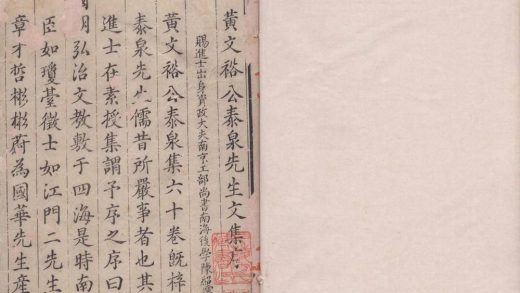 黃文裕公泰泉先生文集序
賜進士出身資政大夫南京工部尚書南海後學陳紹
黃文裕公泰泉集六十卷既梓
泰泉先生儒昔所嚴事者也其
進士在素授集謂予序之序曰
明弘治文教敷于四海是時南
臣如瓊臺徵士如江門二先生
章才哲彬彬蔚為國華先生產